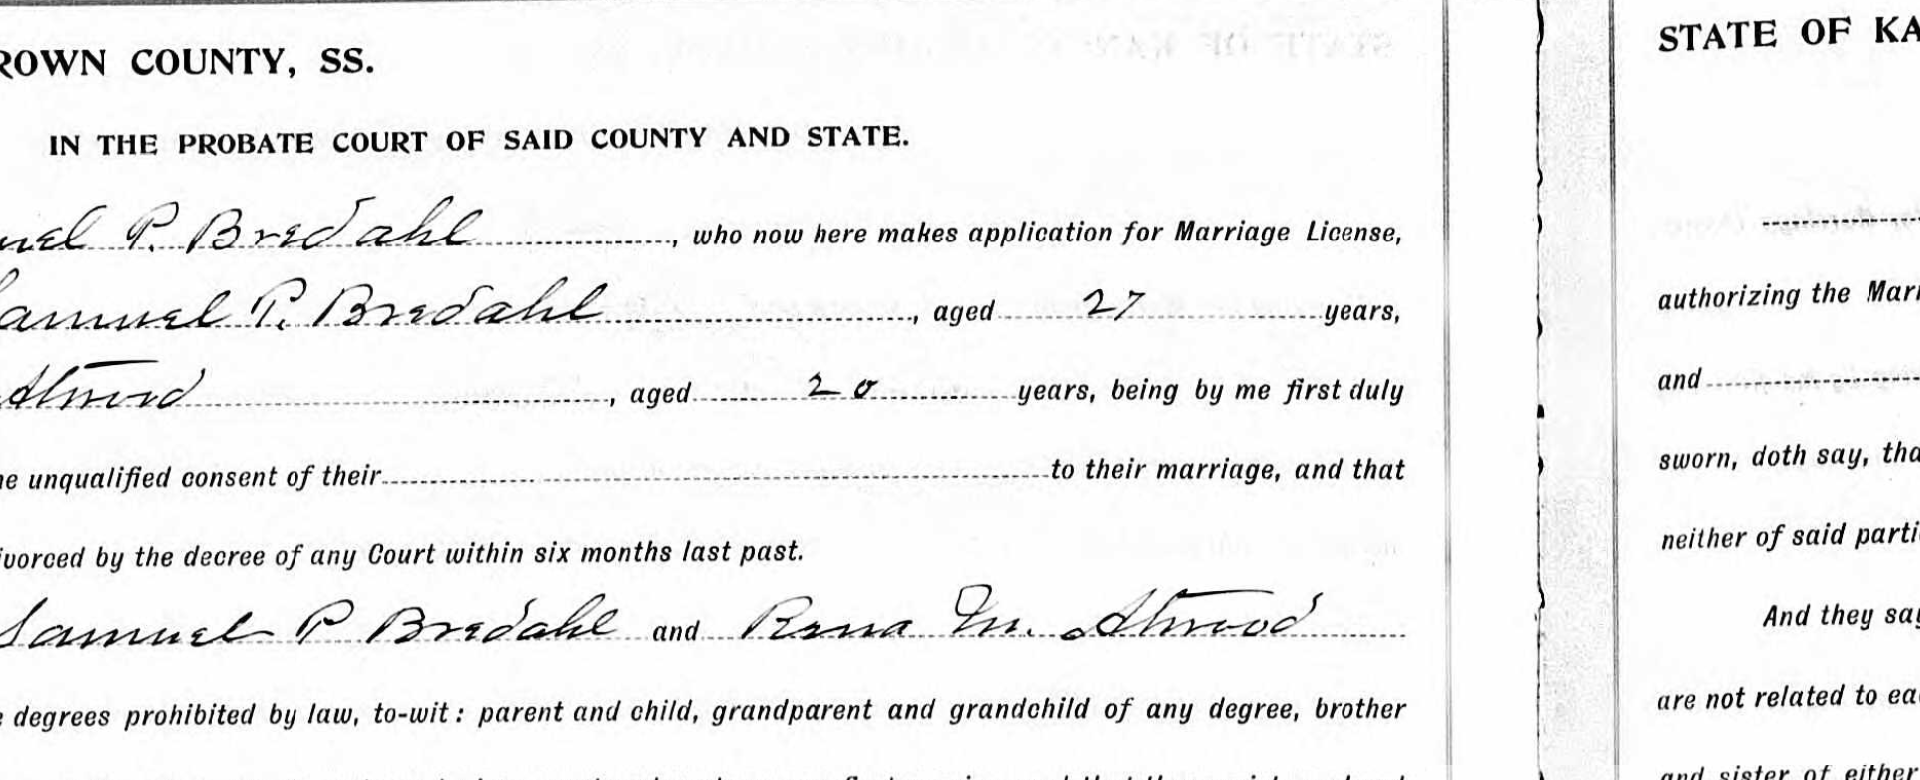 ROWN COUNTY, SS.
IN THE PROBATE COURT OF SAID COUNTY AND STATE.
uel P. Bredahl, who now here makes application for Marriage License,
amuel P. Bredahl, aged 27 years,
Atwood, aged 20 years, being by me first duly
e unqualified consent of their to their marriage, and that
ivorced by the decree of any Court within six months last past.
Samuel P Bredahl and Rena M. Atwood
degrees prohibited by law, to-wit: parent and child, grandparent and grandchild of any degree, brother
STATE OF KA
authorizing the Marr
and
sworn, doth say, tha
neither of said parti
And they say
are not related to ea
and sister of either